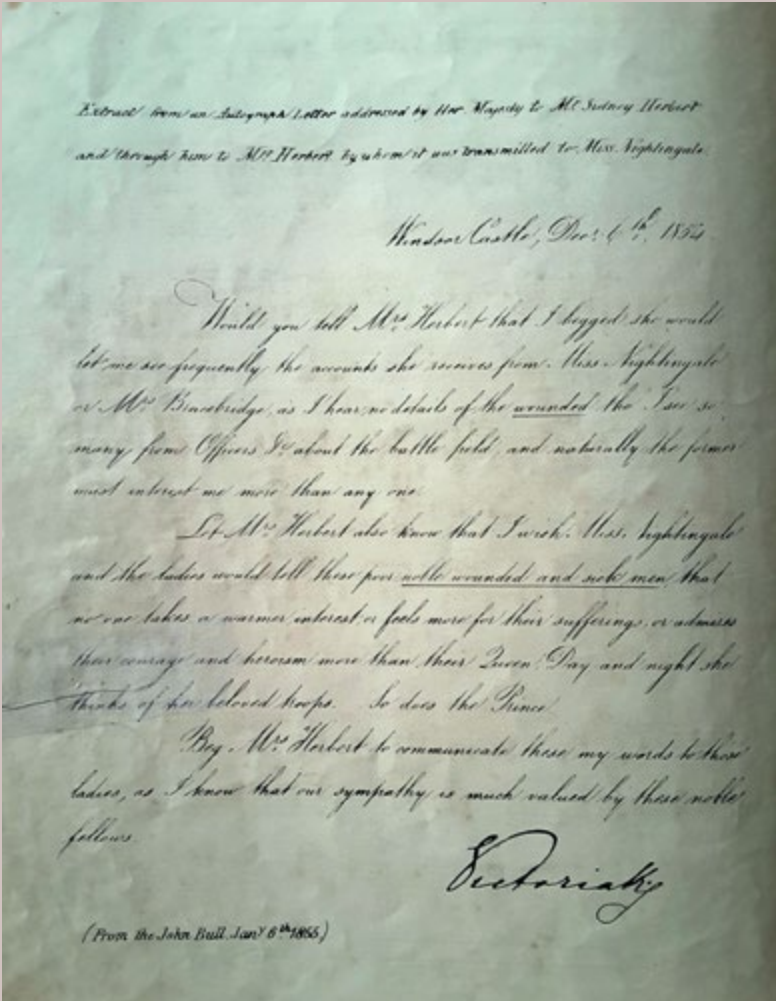 Extract from an Autograph Letter addressed by Her Majesty to Mr. Sidney Herbert
and through him to Mrs Herbert by whom it was transmitted to Miss Nightingale.
Windsor Castle, Decr. 6th, 1854
Would you tell Mrs Herbert that I begged she would
let me see frequently the accounts she receives from Miss Nightingale
or Mrs Bracebridge, as I hear no details of the wounded tho' I see so
many from Officers &c about the battle field, and naturally the former
must interest me more than any one.
Let Mrs Herbert also know that I wish Miss Nightingale
and the ladies would tell these poor noble wounded and sick men that
no one takes a warmer interest or feels more for their sufferings, or admires
their courage and heroism more than their Queen. Day and night she
thinks of her beloved troops. So does the Prince.
Beg Mrs Herbert to communicate these my words to those
ladies, as I know that our sympathy is much valued by these noble
fellows.
Victoria R
(From the John Bull, Jany 6th 1855)